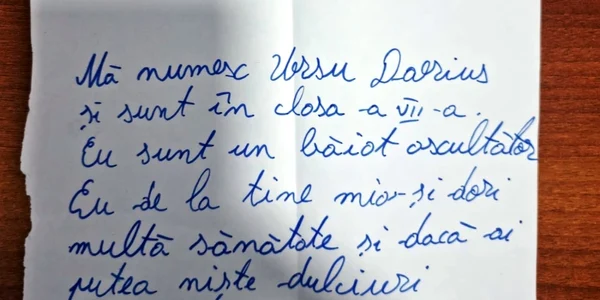 Mă numesc Ursu Darius
și sunt în clasa -a VII -a.
Eu sunt un băiat ascultător
Eu de la tine mi-aș dori
multă sănătate și dacă ai
putea niște dulciuri